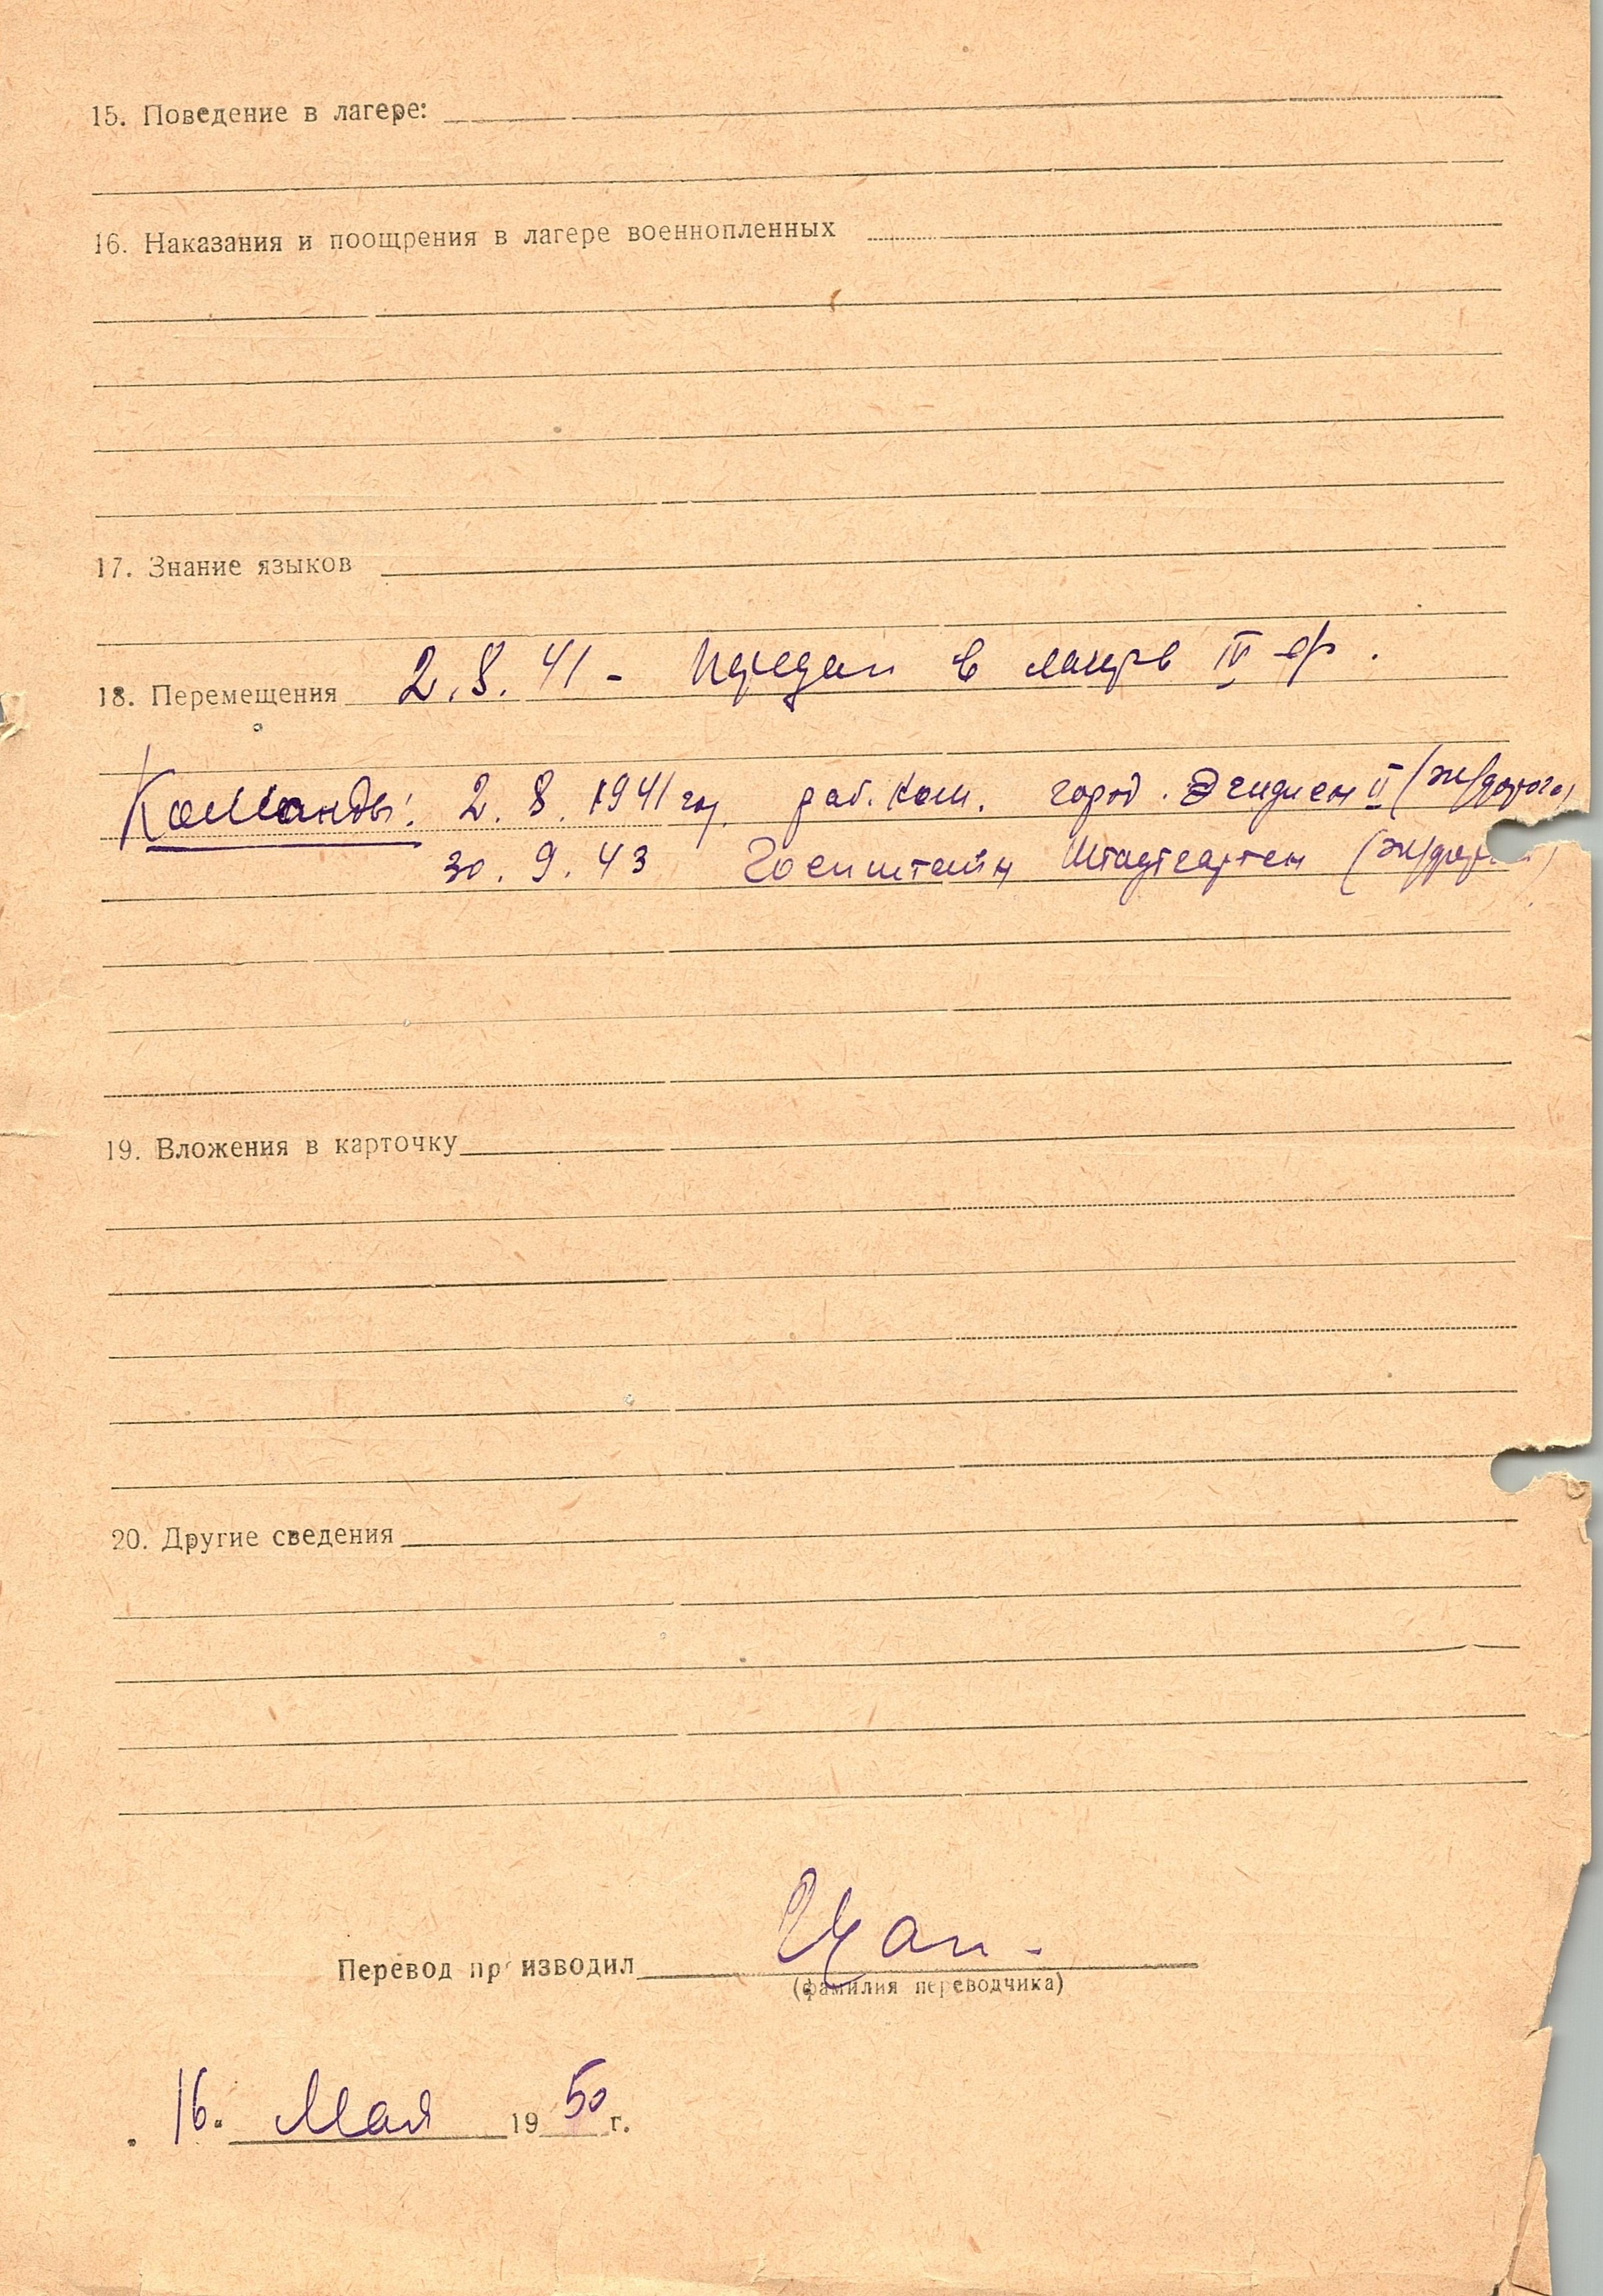 15. Поведение в лагере:
16. Наказания и поощрения в лагере военнопленных
17. Знание языков
18. Перемещения 2.8.41 - Передан в лагерь IV ф.
Команды: 2. 8. 1941 год раб. ком. город. Эгидиен II (ж/дорога)
30. 9. 43 Гоенштейн Штадтгартен (ж/дор
19. Вложения в карточку
20. Другие сведения
Перевод производил
(фамилия переводчика)
16. Мая 1950 г.